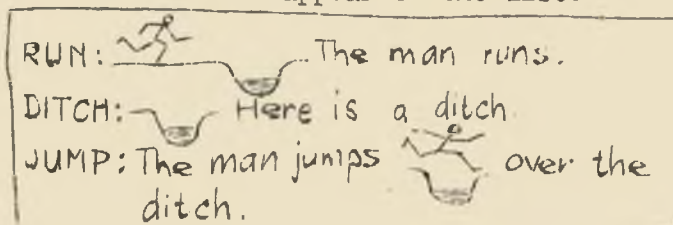 RUN: The man runs.
DITCH: Here is a ditch
JUMP: The man jumps over the
ditch.